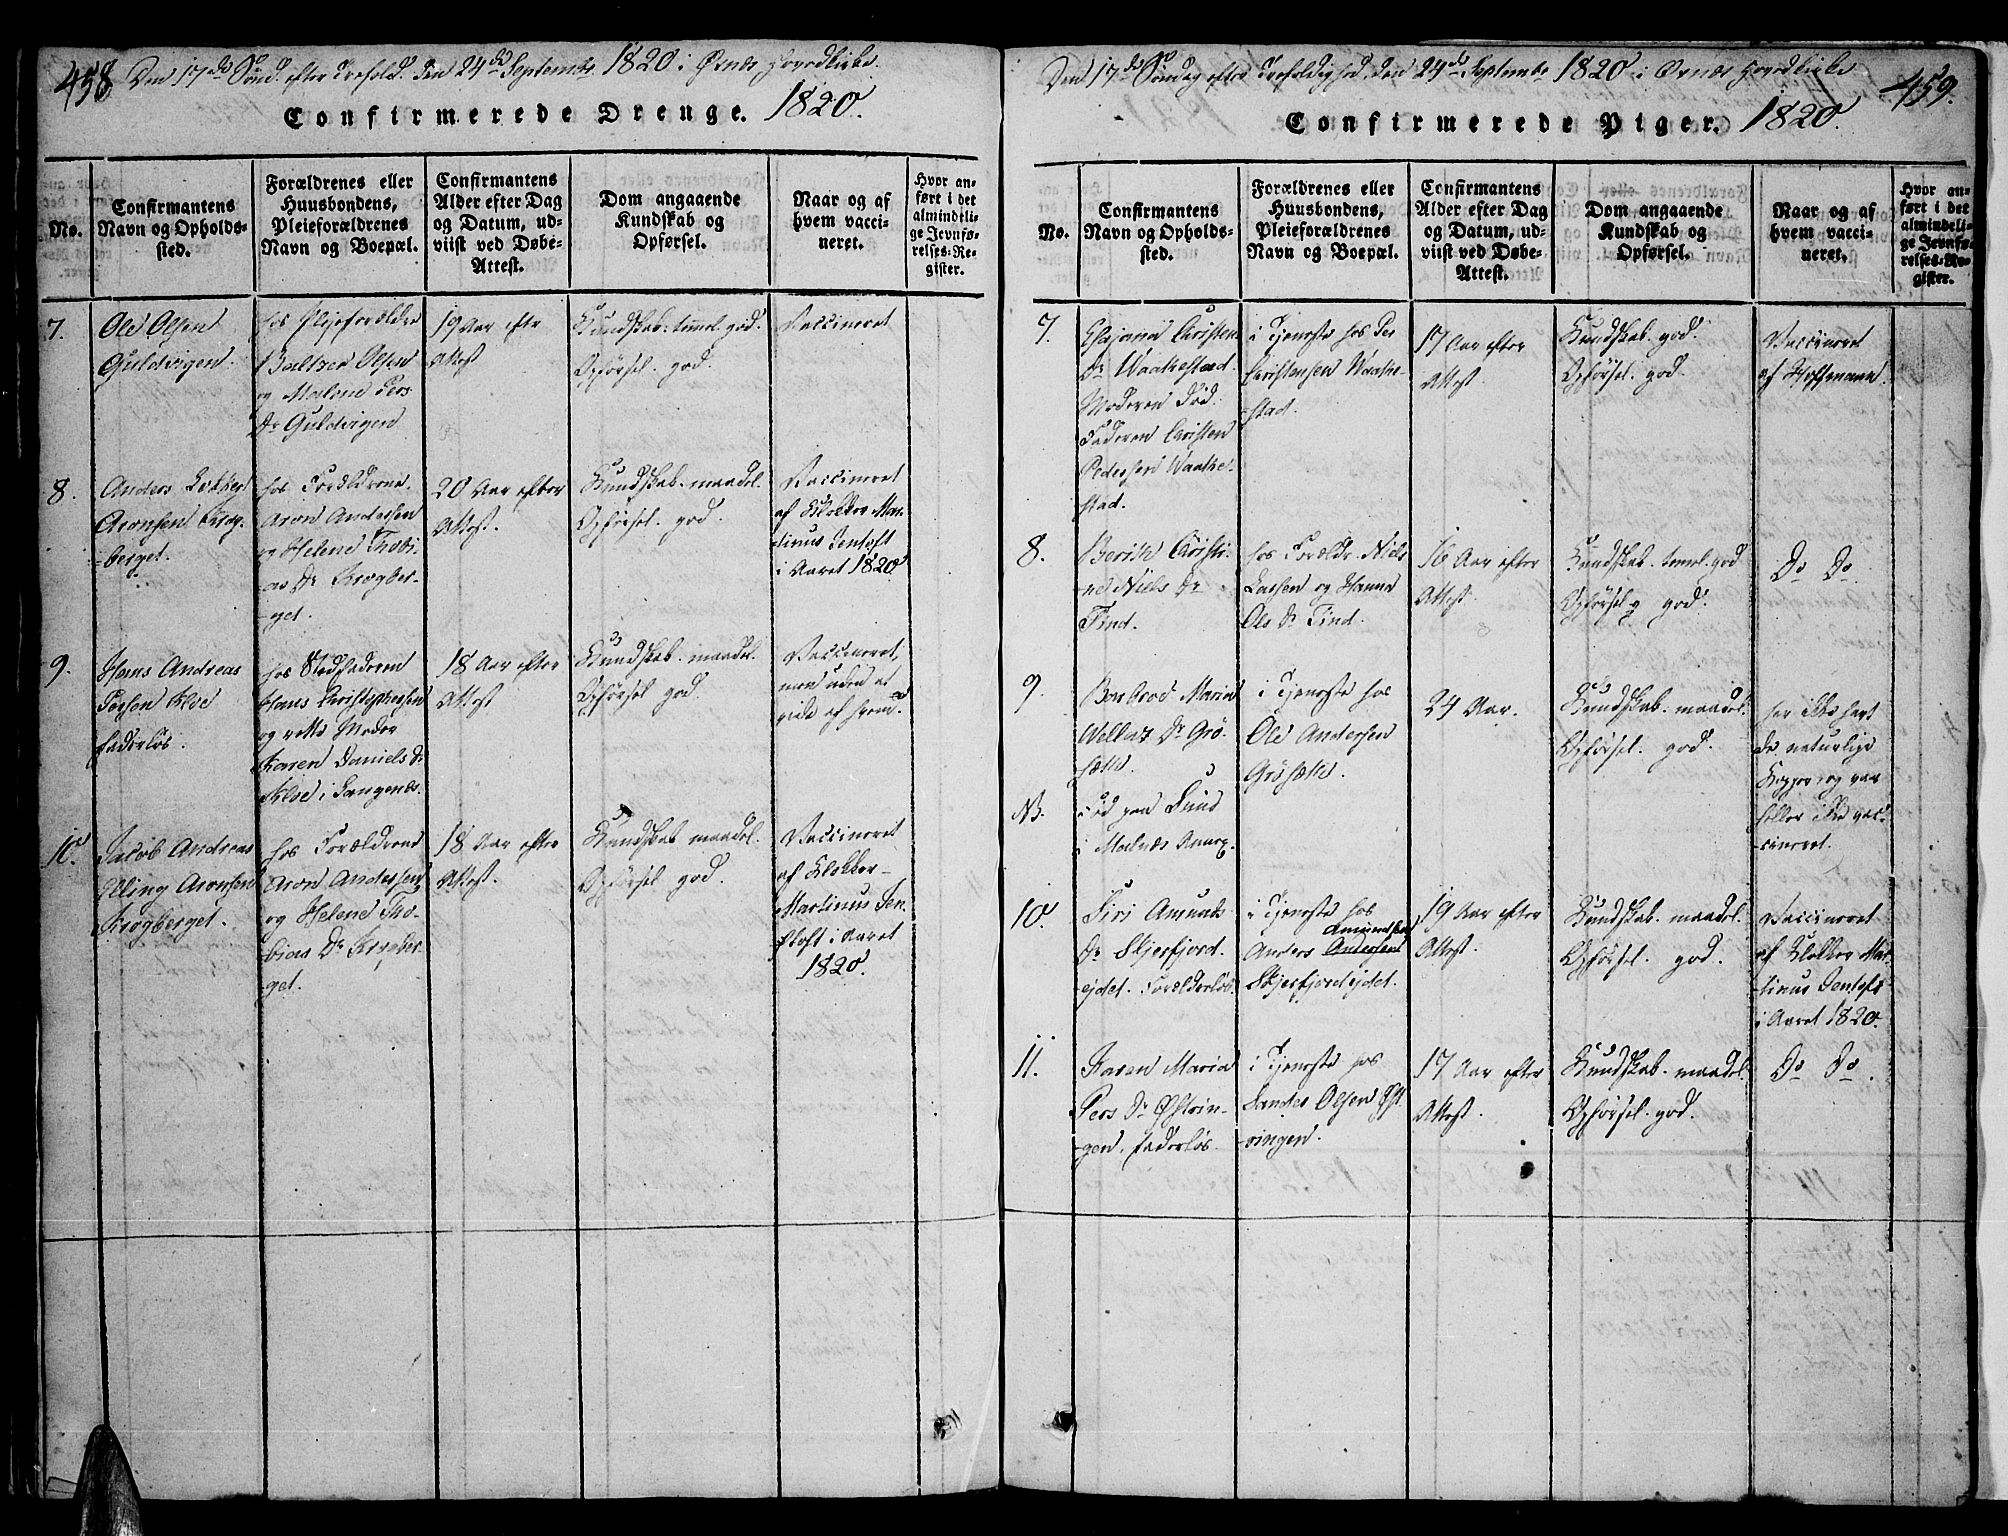 458
Den 17de Sønd. efter Trefold. den 24de Septembr. 1820 i Øxnæs Hovedkirke.
Confirmerede Drenge. 1820.
No.
Confirmantens
Navn og Opholds-
sted.
Forældrenes eller
Huusbondens,
Pleieforældrenes
Navn og Boepæl.
Confirmantens
Alder efter Dag
og Datum, ud-
viist ved Døbe-
Attest.
Dom angaaende
Kundskab og
Opførsel.
Naar og af
hvem vacci-
neret.
Hvor an-
ført i det
almindeli-
ge Jevnfø-
relses-Re-
gister.
7.
Ole Olsen
Guldvigen.
hos Plejeforældre
Baltzer Olsen
og Malene Pers
Dr Guldvigen
19 Aar efter
Attest
Kundskab. temmel. god.
Opførsel. god.
Vaccineret
8.
Anders
Aronsen Krog-
-berget.
hos Forældrene.
Aron Andersen
og Helene Thobi-
as Dr Krogber-
-get.
20 Aar efter
Attest.
Kundskab. maadel.
Opførsel. god.
Vaccineret
af Klokker Mar-
-tinus Jentoft
i Aaret 1820
9.
Hans Andreas
Persen Kloe
faderløs.
hos Stedfaderen
Hans Christophersen
og rette Moder
Karen Daniels Dr
Kloe i Langenes.
18 Aar efter
Attest
Kundskab. maadel.
Opførsel god.
Vaccineret,
men uden at
vide af hvem.
10.
Jacob Andreas
Elling Aronsen
Krogberget.
hos Forældrene
Aron Andersen
og Helene Tho-
bias Dr Krogber-
-get.
18 Aar efter
Attest.
Kundskab maadel.
Opførsel god.
Vaccineret
af Klokker
Martinus Jen-
-toft i Aaret
1820.
459.
Den 17de Søndag efter Trefoldighed, den 24de Septembr 1820 i Øxnæs Hovedkirke
Confirmerede Piger. 1820.
No.
Confirmantens
Navn og Opholds-
sted.
Forældrenes eller
Huusbondens,
Pleieforældrenes
Navn og Boepæl.
Confirmantens
Alder efter Dag
og Datum, ud-
viist ved Døbe-
Attest.
Dom angaaende
Kundskab og
Opførsel.
Naar og af
hvem vacci-
neret.
Hvor an-
ført i det
almindeli-
ge Jevnfø-
relses-Re-
gister.
7.
Christen-
Dr Waathestad.
Moderen død.
Faderen Christen
Pedersen Waathe-
stad.
i Tjeneste hos Per
Christensen Waathe-
-stad.
17 Aar efter
Attest.
Kundskab. god.
Opførsel. god.
Vaccineret
af Hoffmann.
8.
Berith Christi-
-ne Niels Dr
Tind.
hos Forældr. Niels
Larsen og Hanna
Ols Dr Tind.
16 Aar efter
Attest.
Kundskab. temmel. god
Opførsel god.
Do Do.
9.
Maria
Dr Grø-
sætte.
NB.
fød paa Lund
i Malnæs Annex.
i Tjeneste hos
Ole Andersen
Grøsætte.
24 Aar.
Kundskab. maadel.
Opførsel. god.
har ikke havt
de naturlige
Kopper, og var
heller ikke vac-
cineret.
10.
Siri Amunds
Dr Skjerfjord-
ejdet. Forælderløs.
i Tjeneste hos
Amundsen
Anders Andersen
Skjerfjordejdet.
19 Aar efter
Attest.
Kundskab. maadel.
Opførsel. god.
Vaccineret
af Klokker Mar-
-tinus Jentoft
i Aaret 1820.
11.
Karen Maria
Pers Dr Østvin-
-gen, faderløs.
i Tjeneste hos
Sander Olsen Øst-
-vingen.
17 Aar efter
Attest.
Kundskab. maadel.
Opførsel. god.
Do Do.